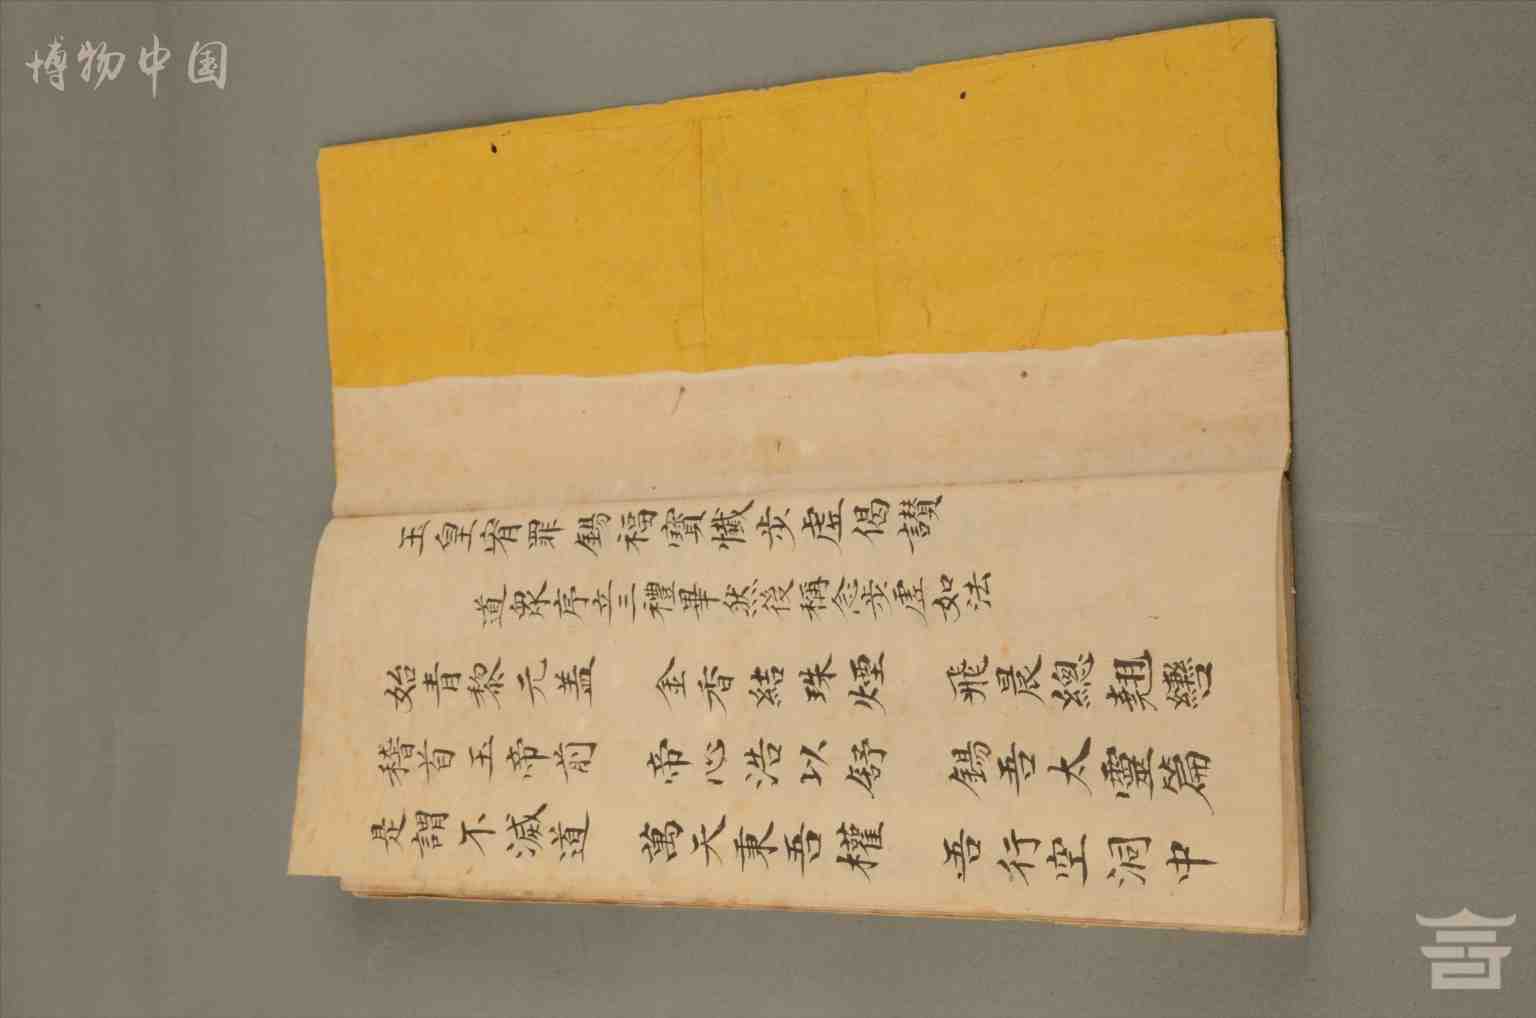 博物中国
玉皇宥罪錫福寶懺步虛偈讚
道衆序立三禮畢然後稱念步虛如法
始青黎元盖 金香結珠煙 飛晨總翹轡
稽首玉帝前 帝心浩以舒 錫吾太靈篇
是謂不滅道 萬天秉吾權 吾行空洞中